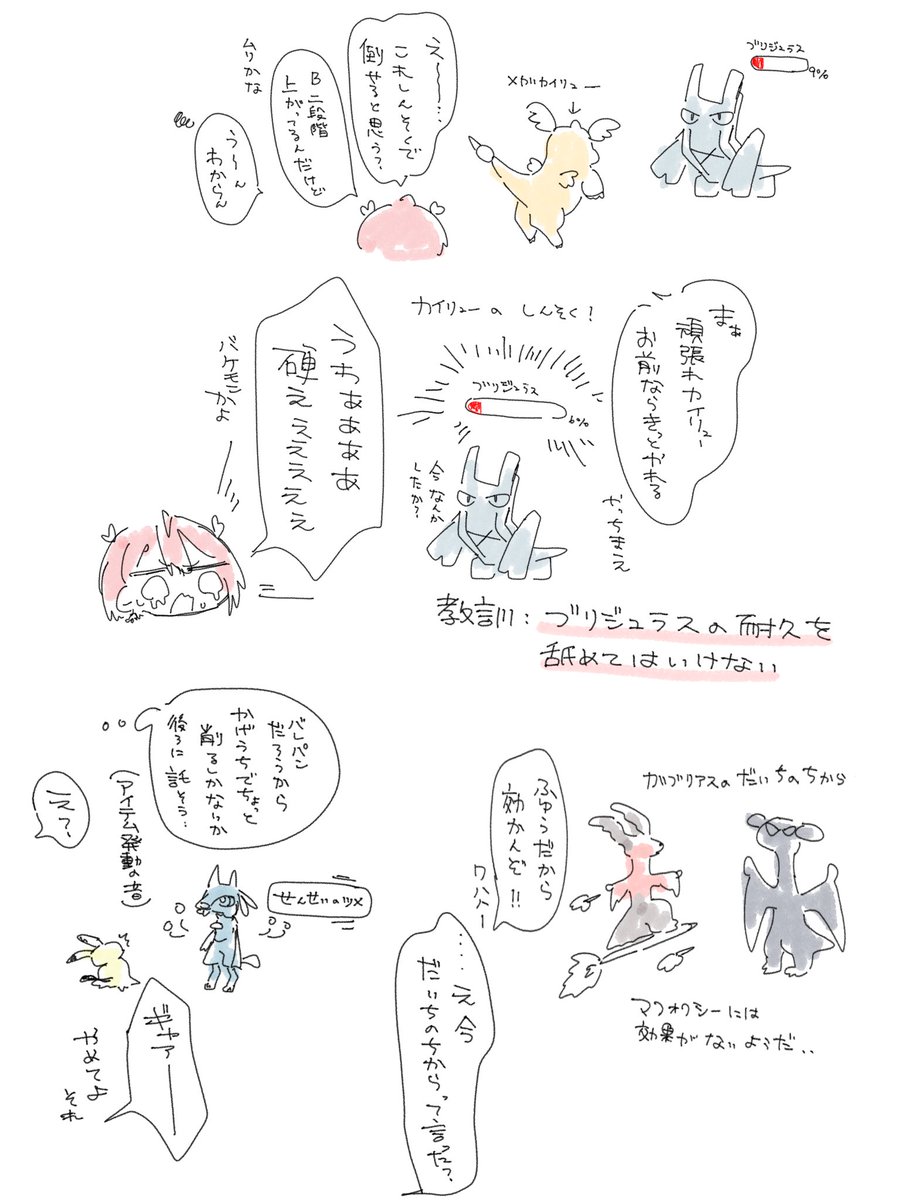 ブリジュラス
9%
メガカイリュー
え〜〜…
これしんそくで
倒せると思う?
B二段階
上がってるんだけど
ムリかな
うーん
わからん
まぁ
頑張れカイリュー
お前ならきっとやれる
やっちまえ
カイリューの しんそく!
ブリジュラス
6%
今なんか
したか?
うわぁぁぁぁ
硬ぇぇぇぇぇ
バケモンかよ
教訓:ブリジュラスの耐久を
舐めてはいけない
バレパン
だろうから
かげうちでちょっと
削るしかないか
後ろに託そう…
(アイテム発動の音)
え?
せんせいのツメ
ギャアー
やめてよ
それ
ガブリアスのだいちのちから
ふゆうだから
効かんぞ!!
ワハハー
マフォクシーには
効果がないようだ..
……え今
だいちのちからって言った?